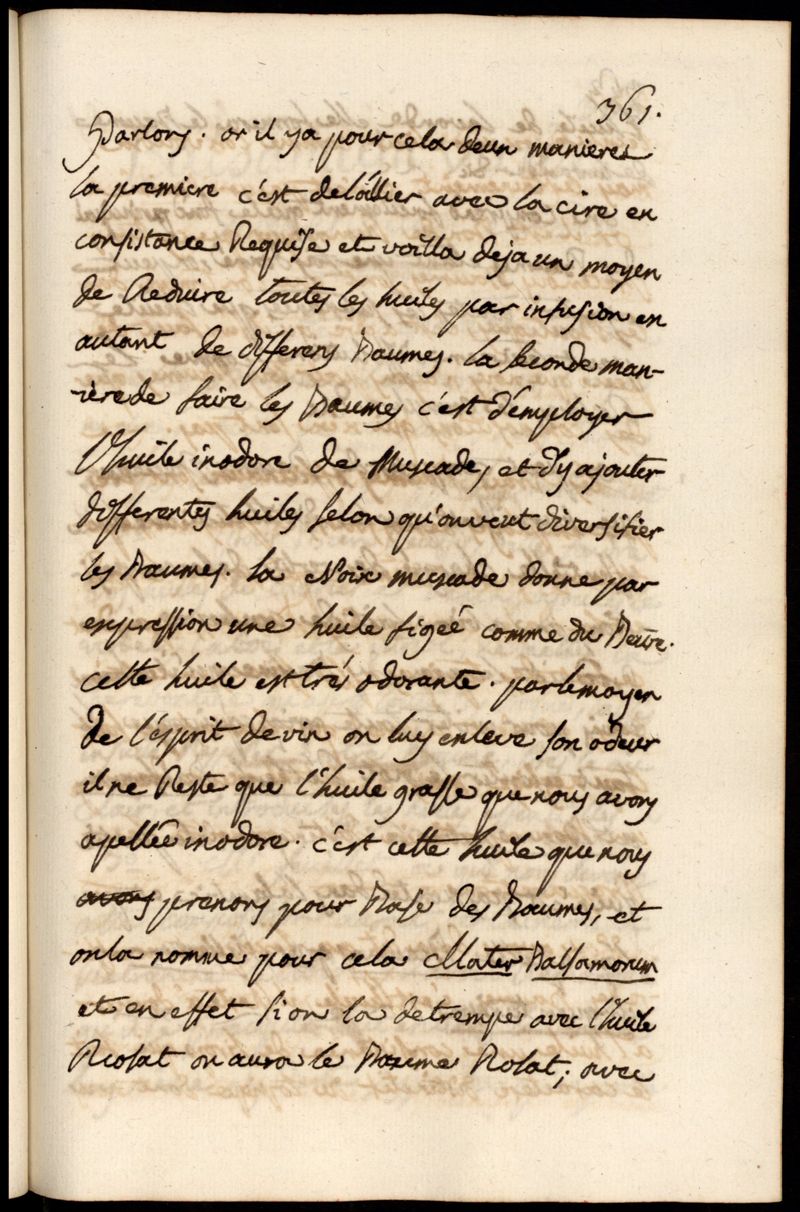 361.
Parlons. or il ya pour cela deux manieres
la premiere c'est de l'allier avec la cire en
consistance Requise et voilla deja un moyen
de Reduire toutes les huiles par infusion en
autant de differens Baumes. la seconde man-
-ière de faire les Baumes c'est d'employer
l'huile inodore de Muscade, et d'y ajouter
differentes huiles selon qu'on veut diversifier
les Baumes. la Noix muscade donne par
expression une huile figeé comme du Beure.
cette huile est trés odorante. par le moyen
de l'ésprit de vin on luy enleve son odeur
il ne Reste que l'huile grasse que nous avons
apellée inodore. c'est cette huile que nous
avons prenons pour Base des Baumes, et
on la nomme pour cela Mater Balsamorum
et en effet si on la detrempe avec l'huile
Rosat on aura le Baume Rosat; avec